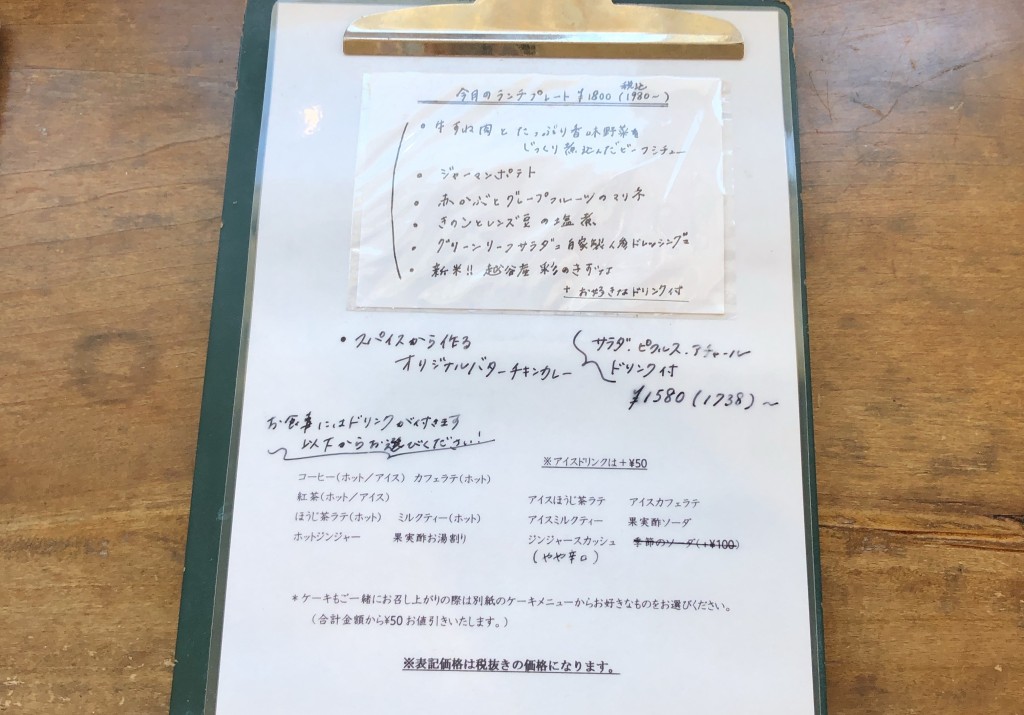 今月のランチプレート ¥1800 (税込1980〜)
・牛すね肉とたっぷり香味野菜を
じっくり煮込んだビーフシチュー
・ジャーマンポテト
・赤かぶとグレープフルーツのマリネ
・きのことレンズ豆の塩煮
・グリーンリーフサラダ 自家製人参ドレッシング
・新米!! 越谷産 彩のきずな
+ お好きなドリンク付
・スパイスから作る
オリジナルバターチキンカレー
サラダ・ピクルス・アチャール
ドリンク付
¥1580(1738)〜
お食事にはドリンクが付きます
以下からお選びください!
※アイスドリンクは+¥50
コーヒー(ホット/アイス) カフェラテ(ホット)
紅茶(ホット/アイス)
ほうじ茶ラテ(ホット) ミルクティー(ホット)
ホットジンジャー 果実酢お湯割り
アイスほうじ茶ラテ アイスカフェラテ
アイスミルクティー 果実酢ソーダ
ジンジャースカッシュ 季節のソーダ(+¥100)
(やや辛口)
*ケーキもご一緒にお召し上がりの際は別紙のケーキメニューからお好きなものをお選びください。
(合計金額から¥50お値引きいたします。)
※表記価格は税抜きの価格になります。